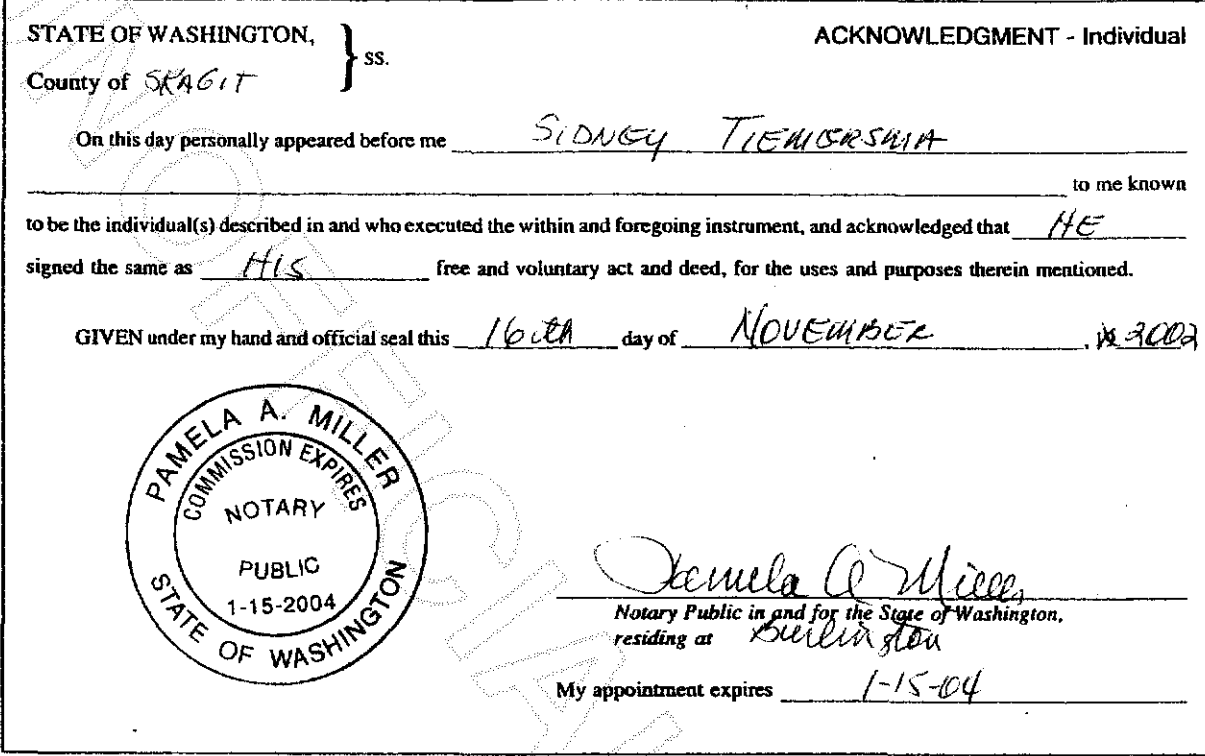 STATE OF WASHINGTON,
ss.
ACKNOWLEDGMENT - Individual
County of SKAGIT
On this day personally appeared before me SIDNEY TIEMERSMA
to me known
to be the individual(s) described in and who executed the within and foregoing instrument, and acknowledged that HE
signed the same as HIS free and voluntary act and deed, for the uses and purposes therein mentioned.
GIVEN under my hand and official seal this 16th day of NOVEMBER, 2002
PAMELA A. MILLER
COMMISSION EXPIRES
NOTARY
PUBLIC
1-15-2004
STATE OF WASHINGTON
Pamela A Miller
Notary Public in and for the State of Washington,
residing at Burlington
My appointment expires 1-15-04